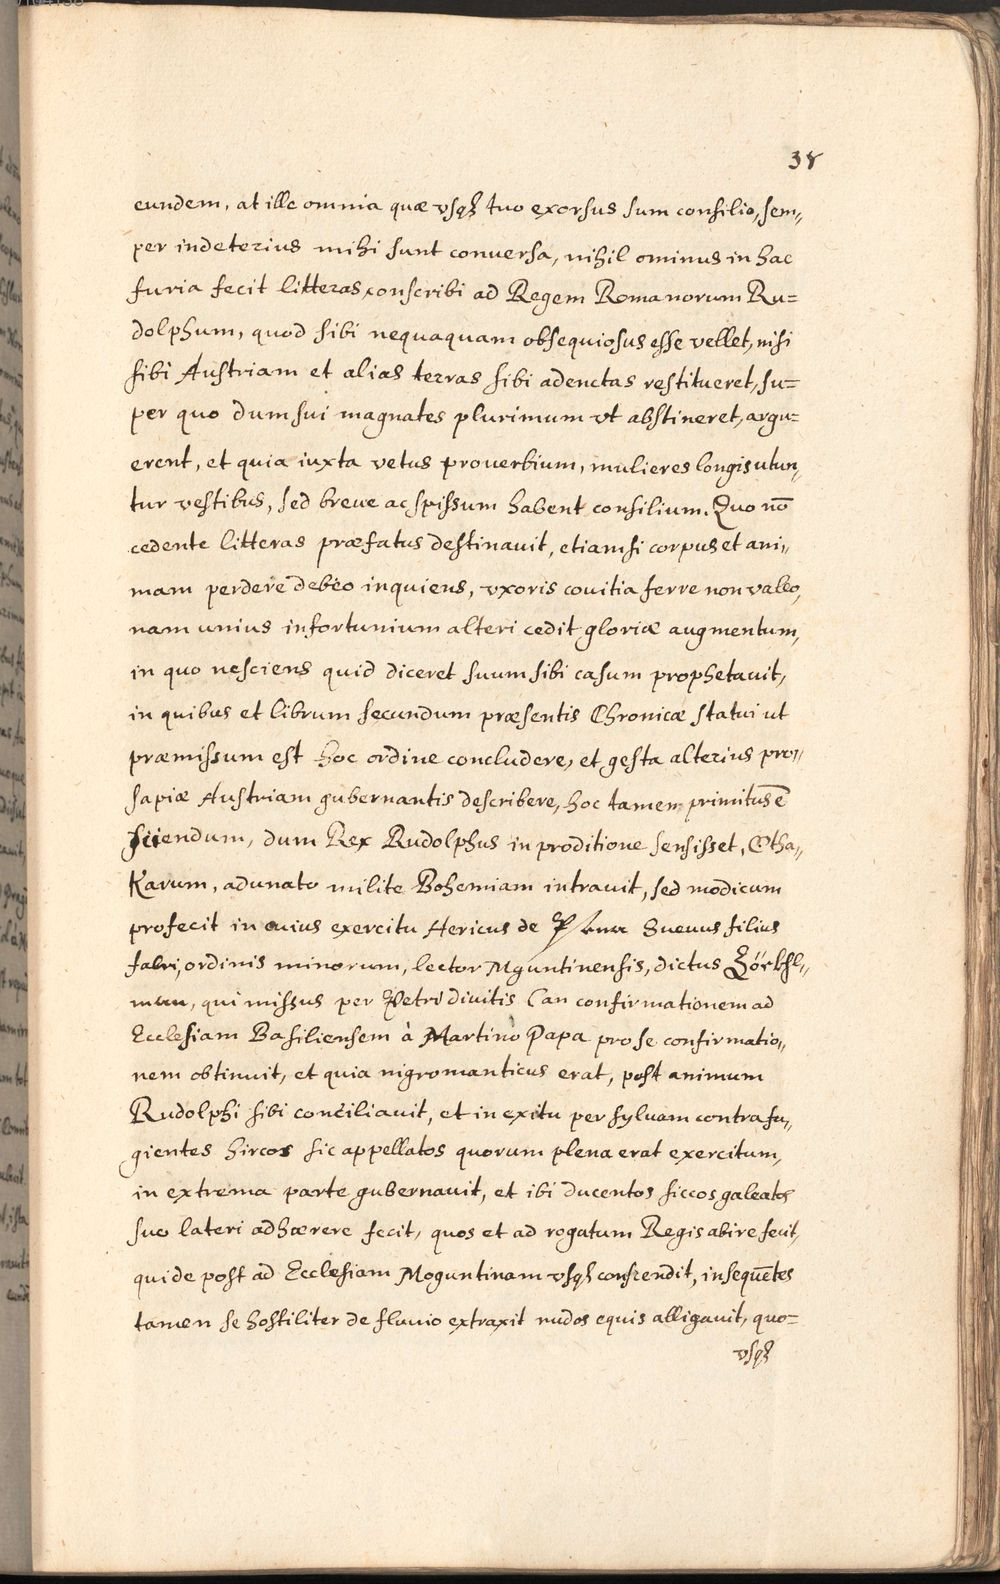 38
eundem, at ille omnia quæ vsq₃ tuo exorsus sum consilio, sem„
per indeterius mihi sunt conuersa, nihil ominus in hac
furia fecit litteras conscribi ad Regem Romanorum Ru=
dolphum, quod sibi nequaquam obsequiosus esse vellet, nisi
sibi Austriam et alias terras sibi adenctas restitueret, su=
per quo dum sui magnates plurimum vt abstineret, argu=
erent, et quia iuxta vetus prouerbium, mulieres longis utun„
tur vestibus, sed breue ac spissum habent consilium. Quo nō
cedente litteras præfatus destinauit, etiamsi corpus et ani„
mam perdere debeo inquiens, vxoris couitia ferre non valeo,
nam unius infortunium alteri cedit gloriæ augmentum,
in quo nesciens quid diceret suum sibi casum prophetauit,
in quibus et librum secundum præsentis Chronicæ statui ut
præmissum est hoc ordine concludere, et gesta alterius pro„
sapiæ Austriam gubernantis describere, hoc tamen primitus ē
sciendum, dum Rex Rudolphus in proditione sensisset, Otha„
Karum, adunato milite Bohemiam intrauit, sed modicum
profecit in cuius exercitu Hericus de Sueuus filius
fabri, ordinis minorum, lector Mguntinensis, dictus
man, qui missus per Petri diuitis Can confirmationem ad
Ecclesiam Basiliensem à Martino Papa pro se confirmatio„
nem obtinuit, et quia nigromanticus erat, post animum
Rudolphi sibi conciliauit, et in exitu per syluam contra fu„
gientes hircos sic appellatos quorum plena erat exercitum,
in extrema parte gubernauit, et ibi ducentos siccos galeatos
suo lateri adhærere fecit, quos et ad rogatum Regis abire fecit,
qui de post ad Ecclesiam Moguntinam vsq₃ conscendit, insequētes
tamen se hostiliter de fluuio extraxit nudos equis alligauit, quo=
vsq₃